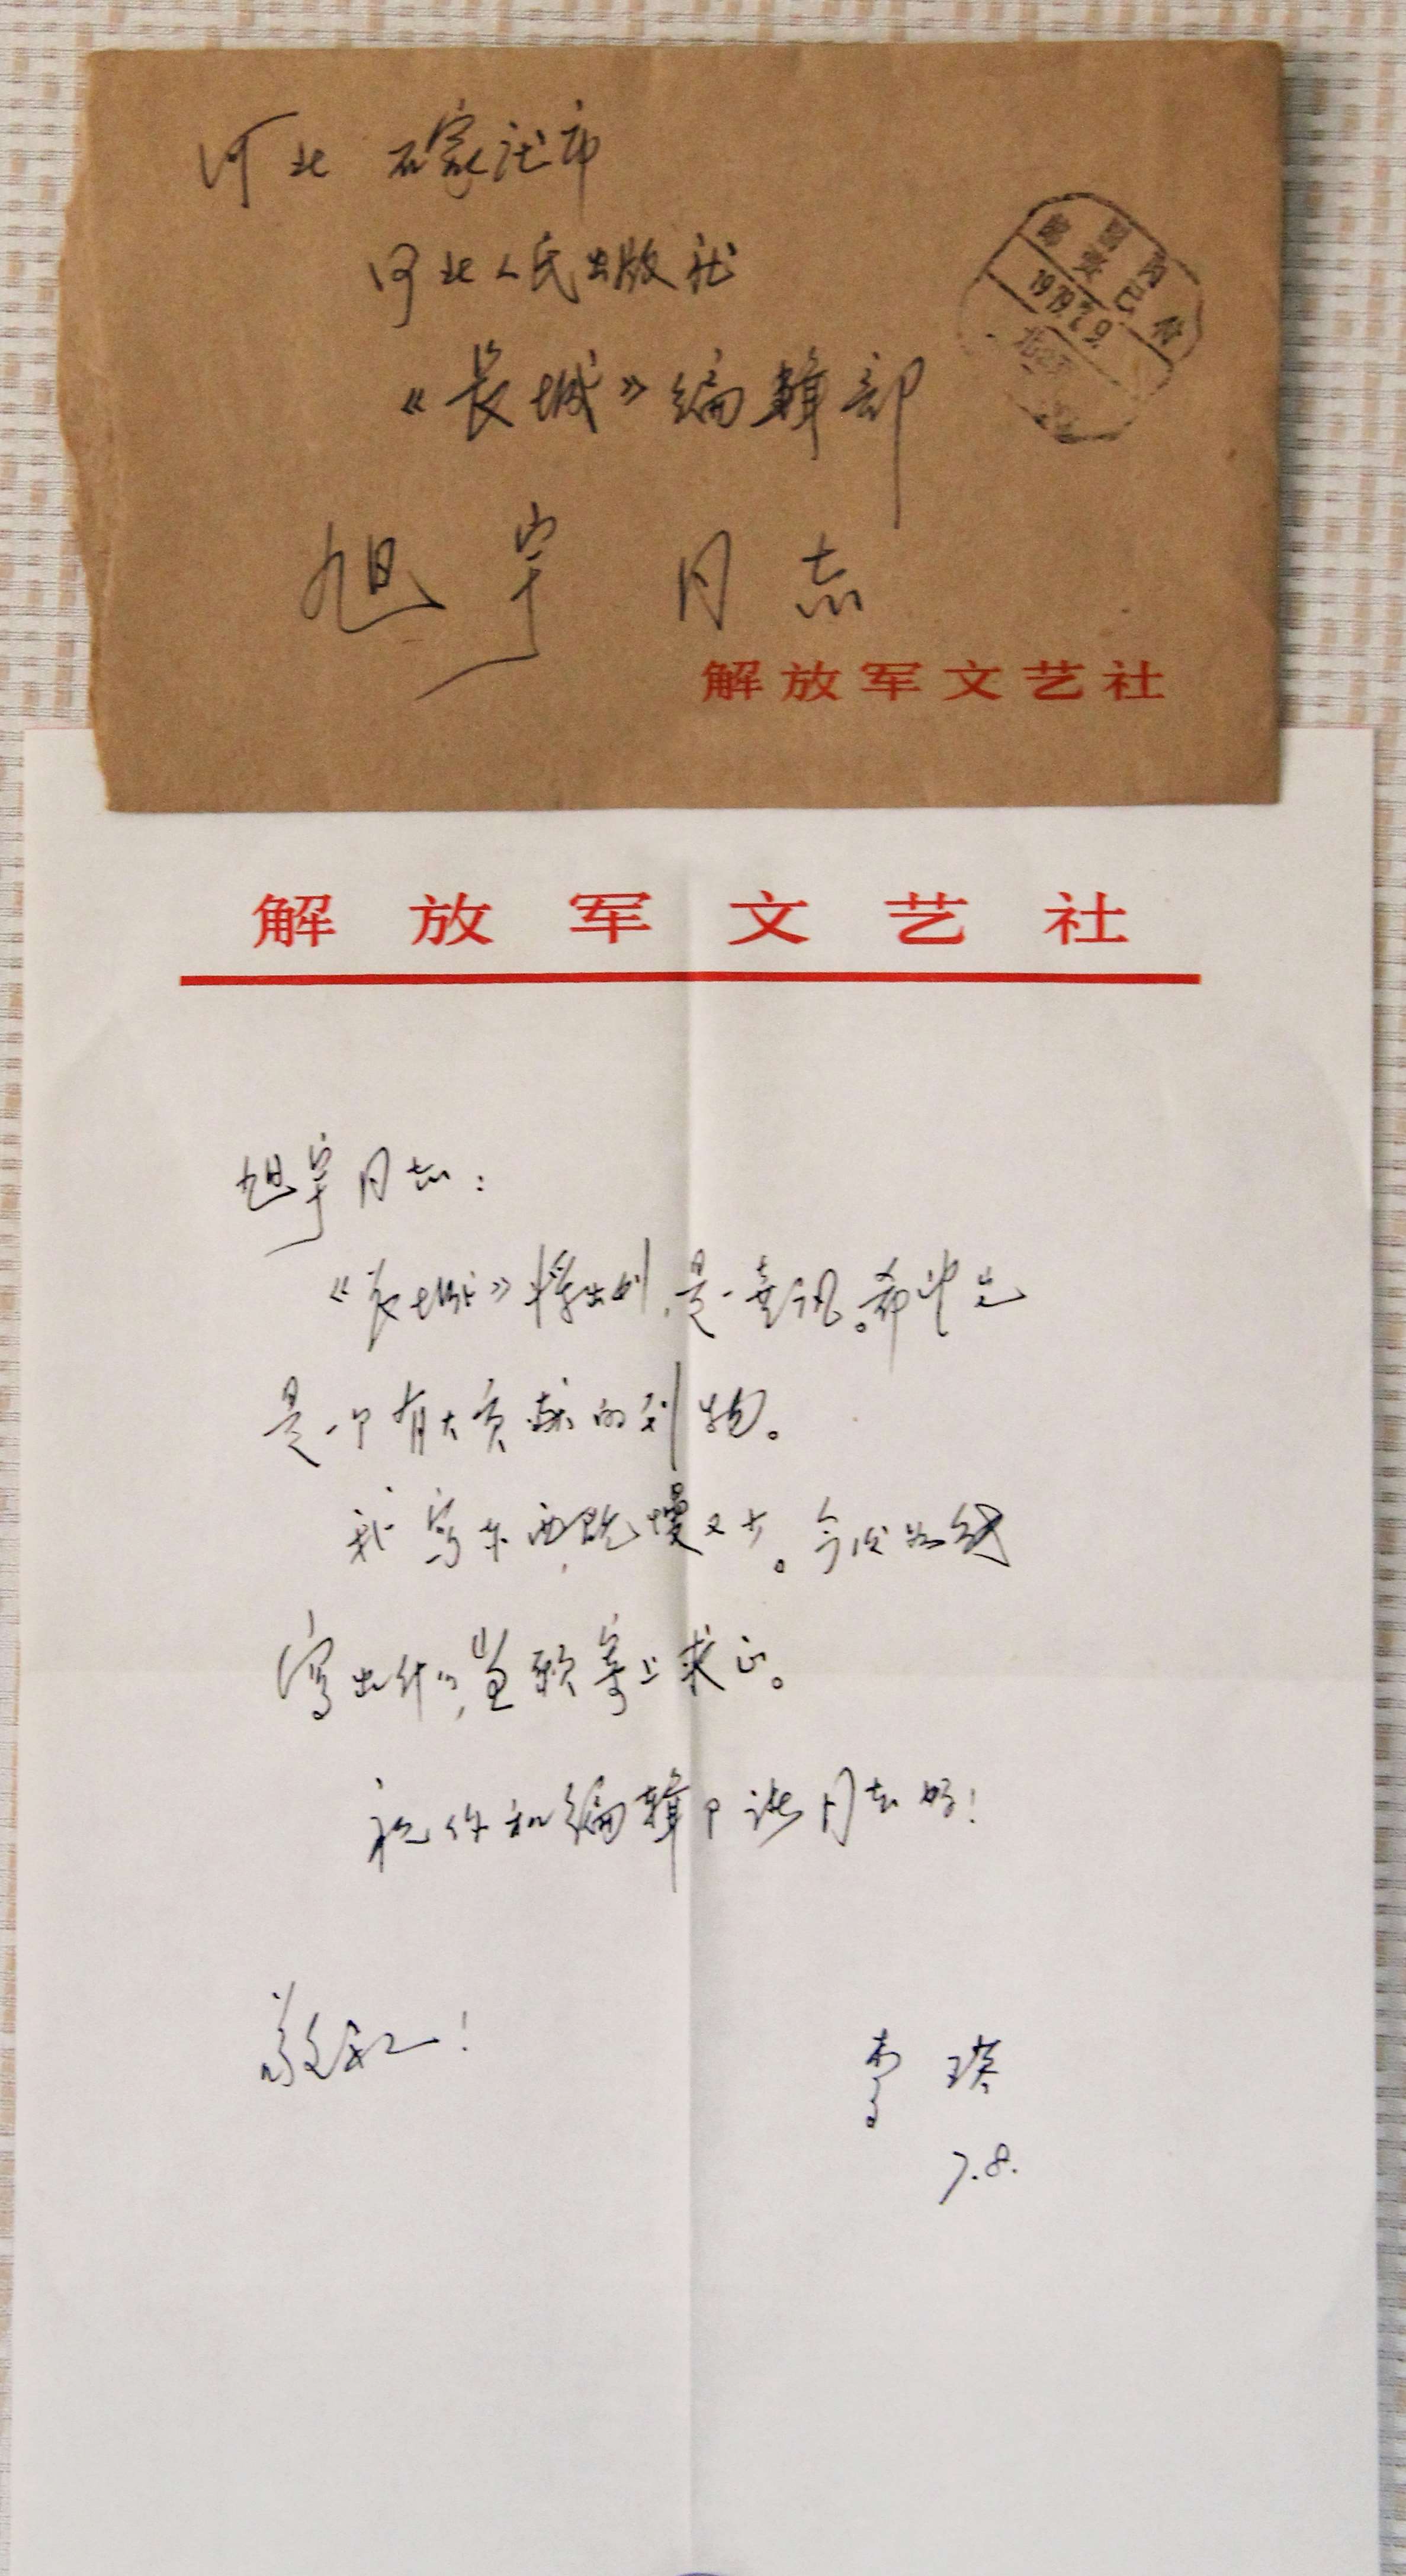 河北 石家庄市
河北人民出版社
《长城》编辑部
旭宇 同志
国内邮资已付
1979.7.9.
北京
解放军文艺社
解放军文艺社
旭宇同志：
《长城》将出刊，是一喜讯。希望它
是一个有大贡献的刊物。
我写东西，既慢又少。今后如能
写出什么，当即寄上求正。
祝你和编辑部诸同志好！
敬礼！
李瑛
7.8.